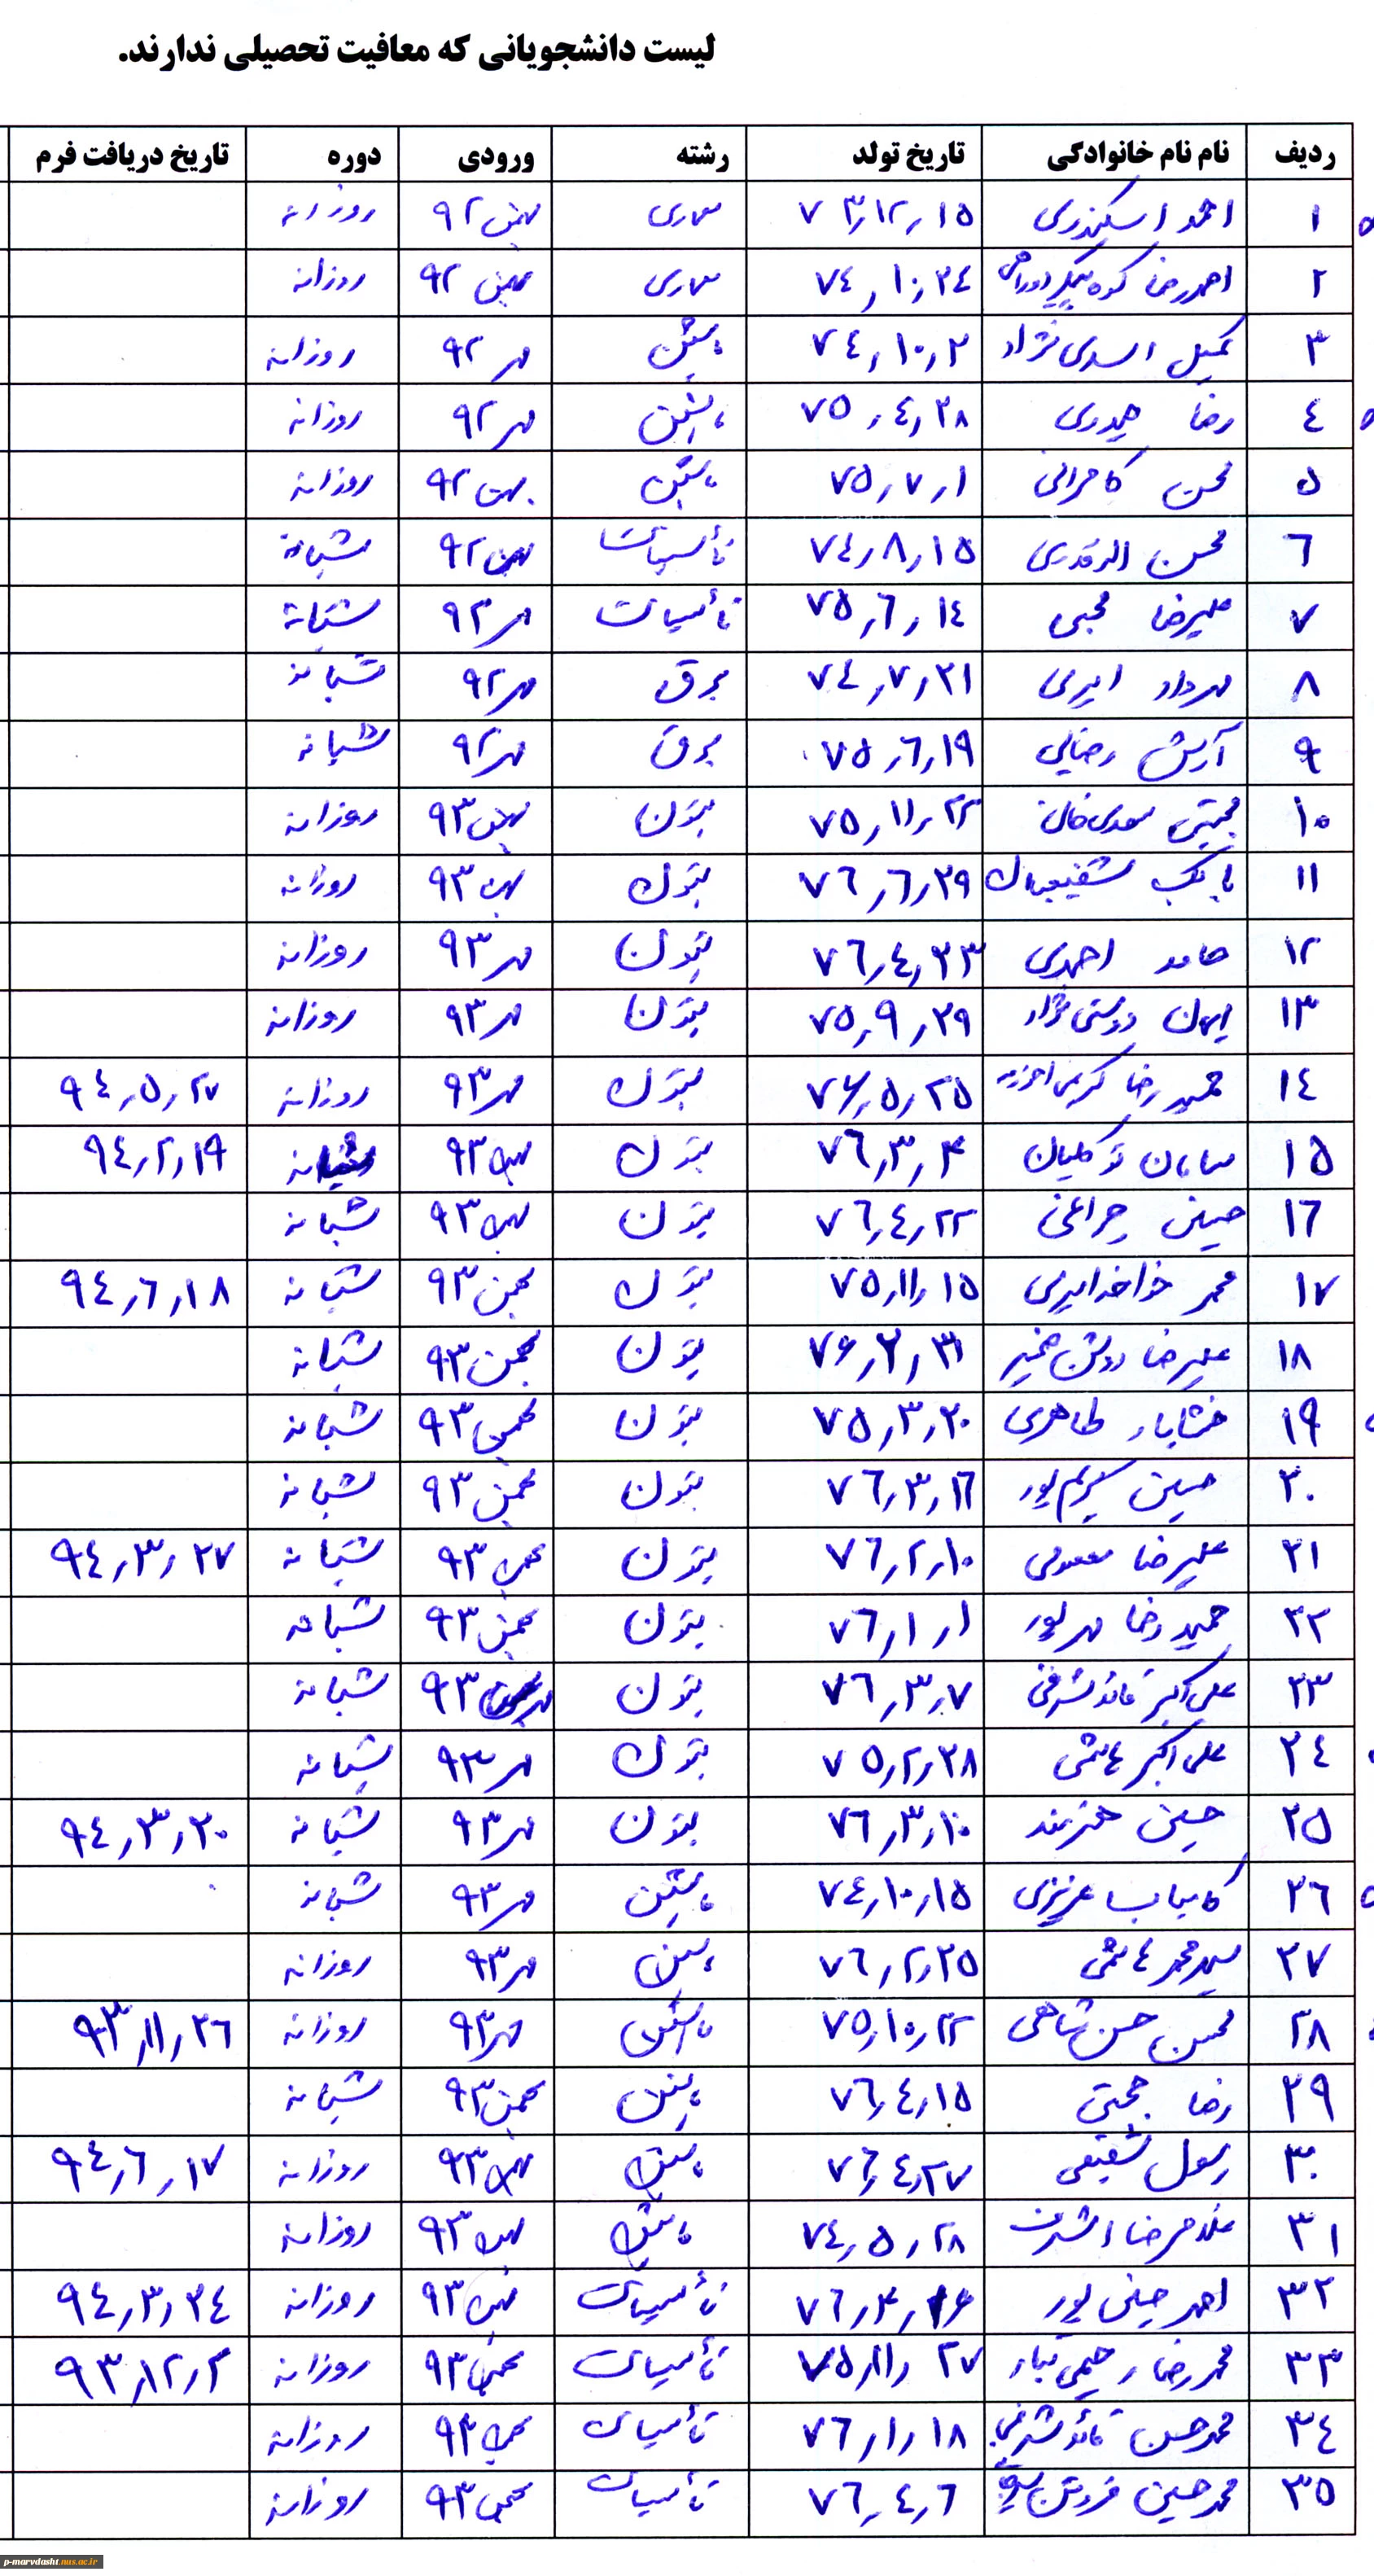 لیست دانشجویانی که معافیت تحصیلی ندارند.
ردیف نام نام خانوادگی تاریخ تولد رشته ورودی دوره تاریخ دریافت فرم
۱ احمد اسکندری ۷۳٫۱۲٫۱۵ بهمن ۹۲ روزانه
۲ احمدرضا ۷۴٫۱۰٫۲۴ بهمن ۹۲ روزانه
۳ کمیل اسدی نژاد ۷۴٫۱۰٫۲ ماشین مهر ۹۲ روزانه
۴ رضا حیدری ۷۵٫۴٫۲۸ ماشین مهر ۹۲ روزانه
۵ محسن کامرانی ۷۵٫۷٫۱ ماشین بهمن ۹۲ روزانه
۶ محسن ۷۴٫۸٫۱۵ تأسیسات بهمن ۹۲ شبانه
۷ علیرضا محبی ۷۵٫۶٫۱۴ تأسیسات مهر ۹۲ شبانه
۸ مهرداد امیری ۷۴٫۷٫۲۱ برق مهر ۹۲ شبانه
۹ آرش رضایی ۷۵٫۶٫۱۹ برق مهر ۹۲ شبانه
۱۰ مجتبی ۷۵٫۱۱٫۲۲ بتون بهمن ۹۳ روزانه
۱۱ بابک شفیعیان ۷۶٫۶٫۲۹ بتون بهمن ۹۳ روزانه
۱۲ حامد احمدی ۷۶٫۴٫۲۳ بتون مهر ۹۳ روزانه
۱۳ ایمان دوستی نژاد ۷۵٫۹٫۲۹ بتون مهر ۹۳ روزانه
۱۴ حمیدرضا ۷۶٫۵٫۲۵ بتون مهر ۹۳ روزانه ۹۴٫۵٫۲۷
۱۵ سامان توکلیان ۷۶٫۳٫۴ بتون بهمن ۹۳ شبانه ۹۴٫۲٫۱۹
۱۶ حسین چراغی ۷۶٫۴٫۲۲ بتون بهمن ۹۳ شبانه
۱۷ محمد خواجه امیری ۷۵٫۱۱٫۱۵ بتون بهمن ۹۳ شبانه ۹۴٫۶٫۱۸
۱۸ علیرضا روشن ضمیر ۷۶٫۲٫۳۱ بتون بهمن ۹۳ شبانه
۱۹ خشایار طاهری ۷۵٫۳٫۲۰ بتون بهمن ۹۳ شبانه
۲۰ حسین کریم پور ۷۶٫۳٫۱۶ بتون بهمن ۹۳ شبانه
۲۱ علیرضا معصومی ۷۶٫۲٫۱۰ بتون بهمن ۹۳ شبانه ۹۴٫۳٫۲۷
۲۲ حمیدرضا مهرپور ۷۶٫۱٫۱ بتون بهمن ۹۳ شبانه
۲۳ علی اکبر قائد شرفی ۷۶٫۳٫۷ بتون ۹۳ شبانه
۲۴ علی اکبر هاشمی ۷۵٫۲٫۲۸ بتون مهر ۹۳ شبانه
۲۵ حسین هنرمند ۷۶٫۳٫۱۰ بتون مهر ۹۳ شبانه ۹۴٫۳٫۲۰
۲۶ کامیاب عزیزی ۷۴٫۱۰٫۱۵ ماشین مهر ۹۳ شبانه
۲۷ سید محمد هاشمی ۷۶٫۲٫۲۵ ماشین مهر ۹۳ روزانه
۲۸ محسن حسن شاهی ۷۵٫۱۰٫۲۲ ماشین مهر ۹۳ روزانه ۹۳٫۱۱٫۲۶
۲۹ رضا حجتی ۷۶٫۴٫۱۵ ماشین بهمن ۹۳ شبانه
۳۰ رسول شفیعی ۷۶٫۴٫۲۷ ماشین بهمن ۹۳ روزانه ۹۴٫۶٫۱۷
۳۱ غلامرضا اشرف ۷۴٫۵٫۲۸ ماشین بهمن ۹۳ روزانه
۳۲ احمد حسینی پور ۷۶٫۳٫۱۶ تأسیسات بهمن ۹۳ روزانه ۹۴٫۳٫۲۴
۳۳ محمدرضا رحیمی تبار ۷۵٫۱۱٫۲۷ تأسیسات بهمن ۹۳ روزانه ۹۳٫۱۲٫۲
۳۴ محمد حسن قائد شرفی ۷۶٫۱٫۱۸ تأسیسات بهمن ۹۳ روزانه
۳۵ محمد حسین ۷۶٫۴٫۶ تأسیسات بهمن ۹۳ روزانه
p-marvdasht.nus.ac.ir